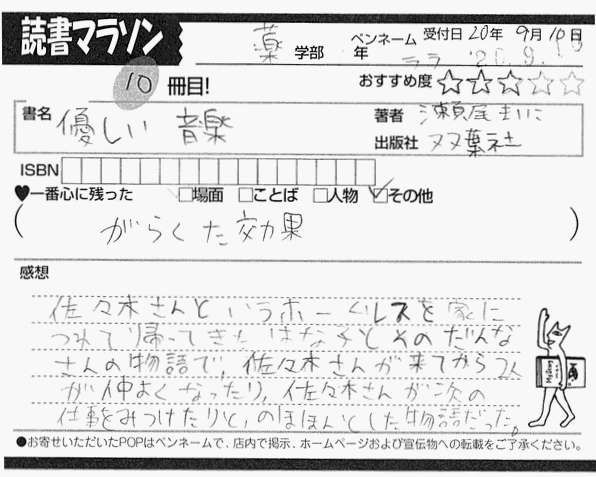 読書マラソン
薬 学部 年 ペンネーム ララ 受付日 20年 9月 10日
'20.9.10
10 冊目! おすすめ度 ☆☆☆☆☆
書名 優しい 音楽 著者 瀬尾まいこ
出版社 双葉社
ISBN
♥一番心に残った □場面 □ことば □人物 ☑その他
( がらくた効果 )
感想
佐々木さんというホームレスを家に
つれて帰ってきたはな子とそのだんな
さんの物語で、佐々木さんが来てから2人
が仲よくなったり、佐々木さんが次の
仕事をみつけたりと、のほほんとした物語だった。
●お寄せいただいたPOPはペンネームで、店内で掲示、ホームページおよび宣伝物への転載をご了承ください。